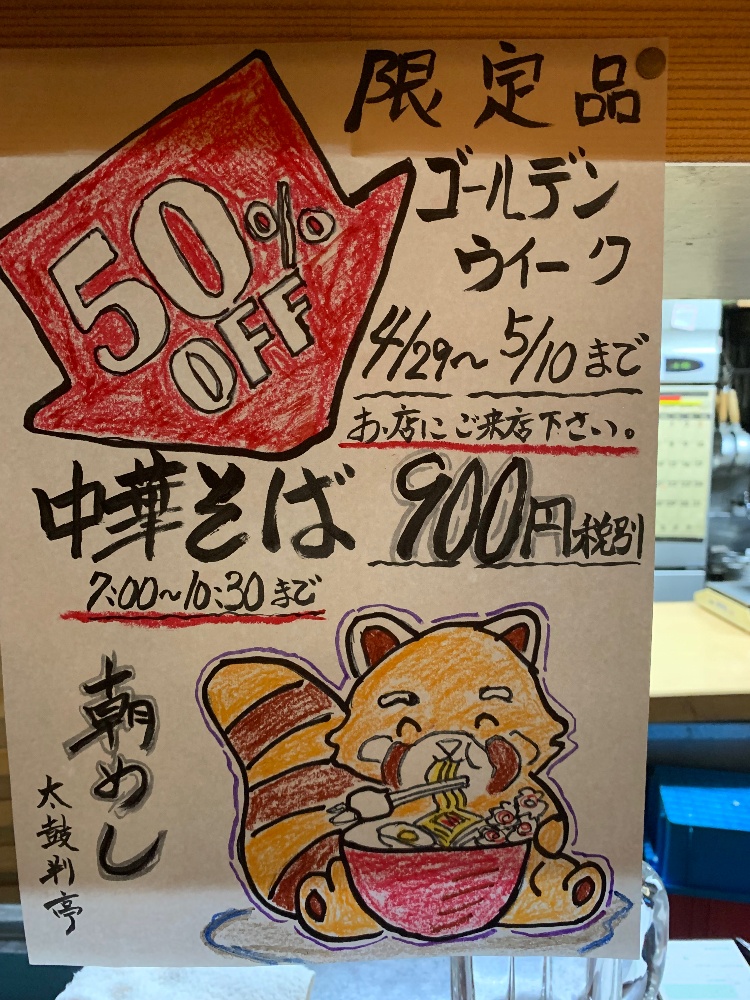 限定品
50%
OFF
ゴールデン
ウイーク
4/29〜5/10まで
お店にご来店下さい。
中華そば 900円税別
7:00〜10:30まで
朝めし
太鼓判亭